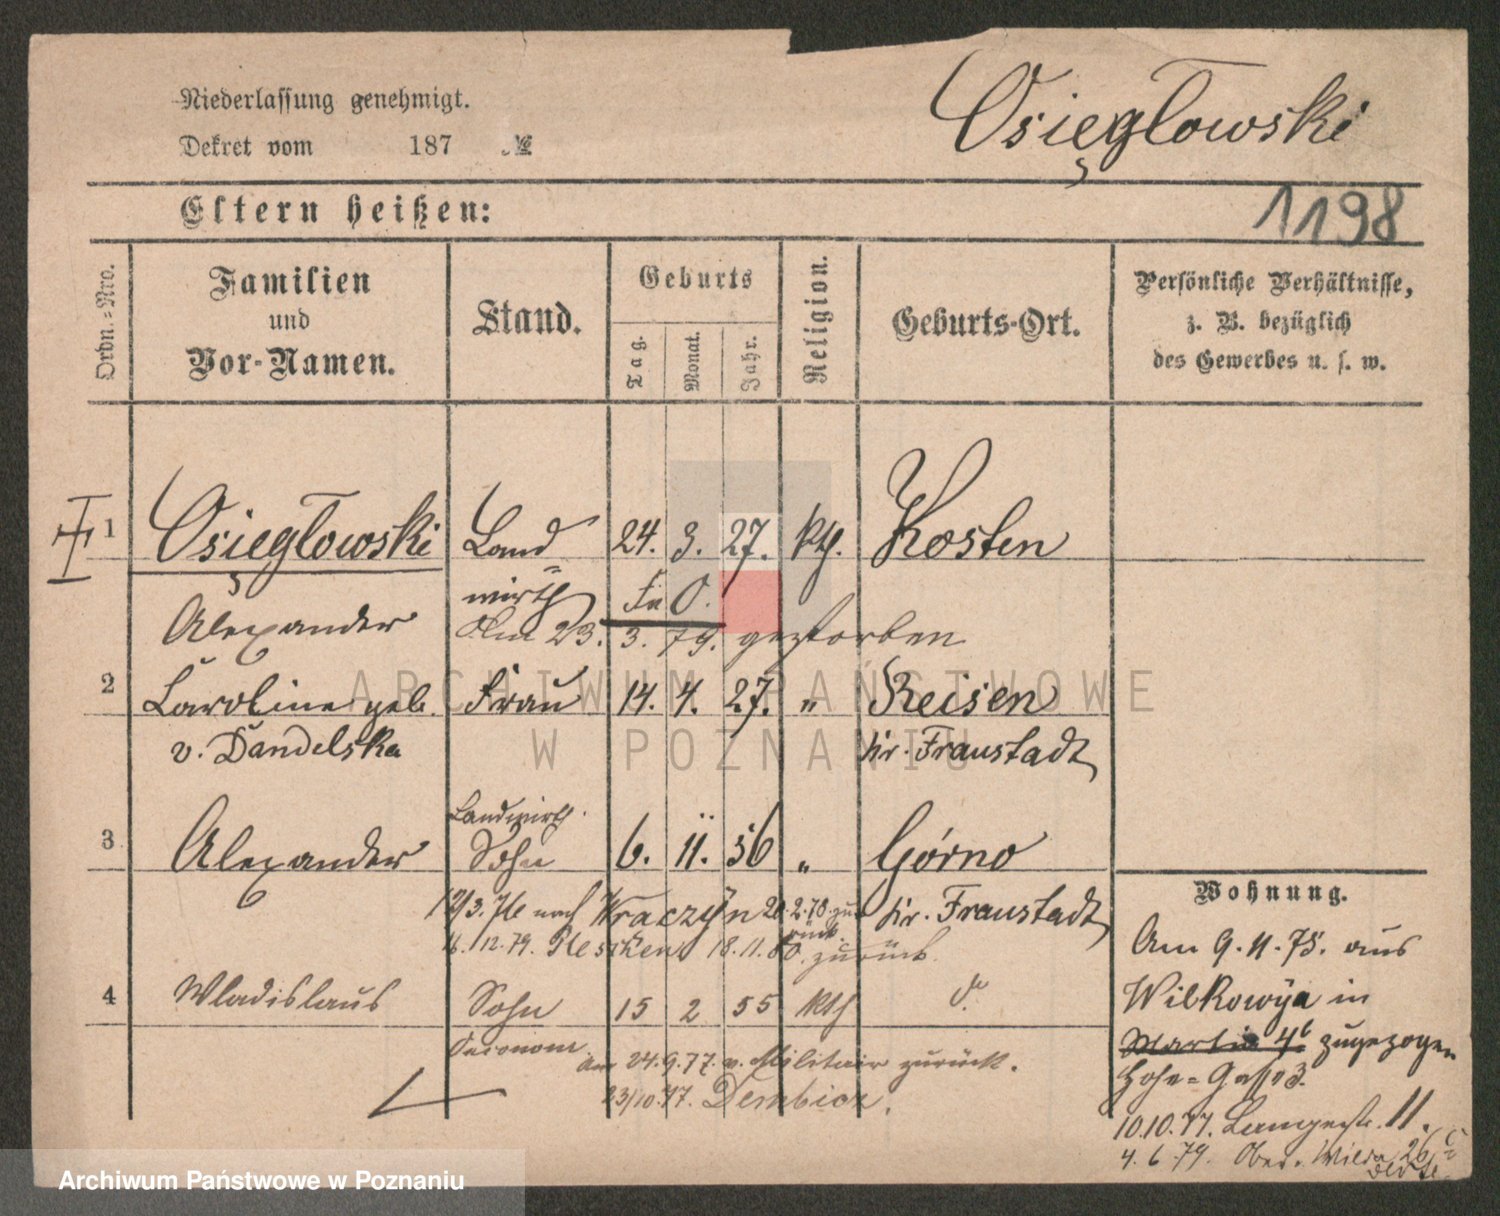 Niederlassung genehmigt.
Dekret vom 187 №
Osięglowski
Eltern heißen:
1198
Ordn.-Nro.
Familien
und
Vor-Namen.
Stand.
Geburts
Tag.
Monat.
Jahr.
Religion.
Geburts-Ort.
Persönliche Verhältnisse,
z. B. bezüglich
des Gewerbes u. s. w.
1 Osięgłowski Land 24. 3. 27. kth. Kosten
Alexander wirth
Am 23. 3. 79. gestorben
2 Caroline geb. Frau 14. 4. 27. " Reisen
v. Dandelska Kr. Fraustadt
Landwirth.
3 Alexander Sohn 6. 11. 56 " Górno
Kr. Fraustadt
nach 2.78 zu
rück.
16./12.79. Pleschen 18.11.80. zurück.
4 Wladislaus Sohn 15 2 55 kth
Oeconom am 24.9.77. v. Militair zurück.
23/10.77.
Wohnung.
Am 9.11.75. aus
Wilkowÿa in
Martin 4b zugezogen
Hohe-Gasse 3.
10.10.77. Langestr. 11.
4.6.79. Ober-Wilda 26
ARCHIWUM PAŃSTWOWE
W POZNANIU
Archiwum Państwowe w Poznaniu